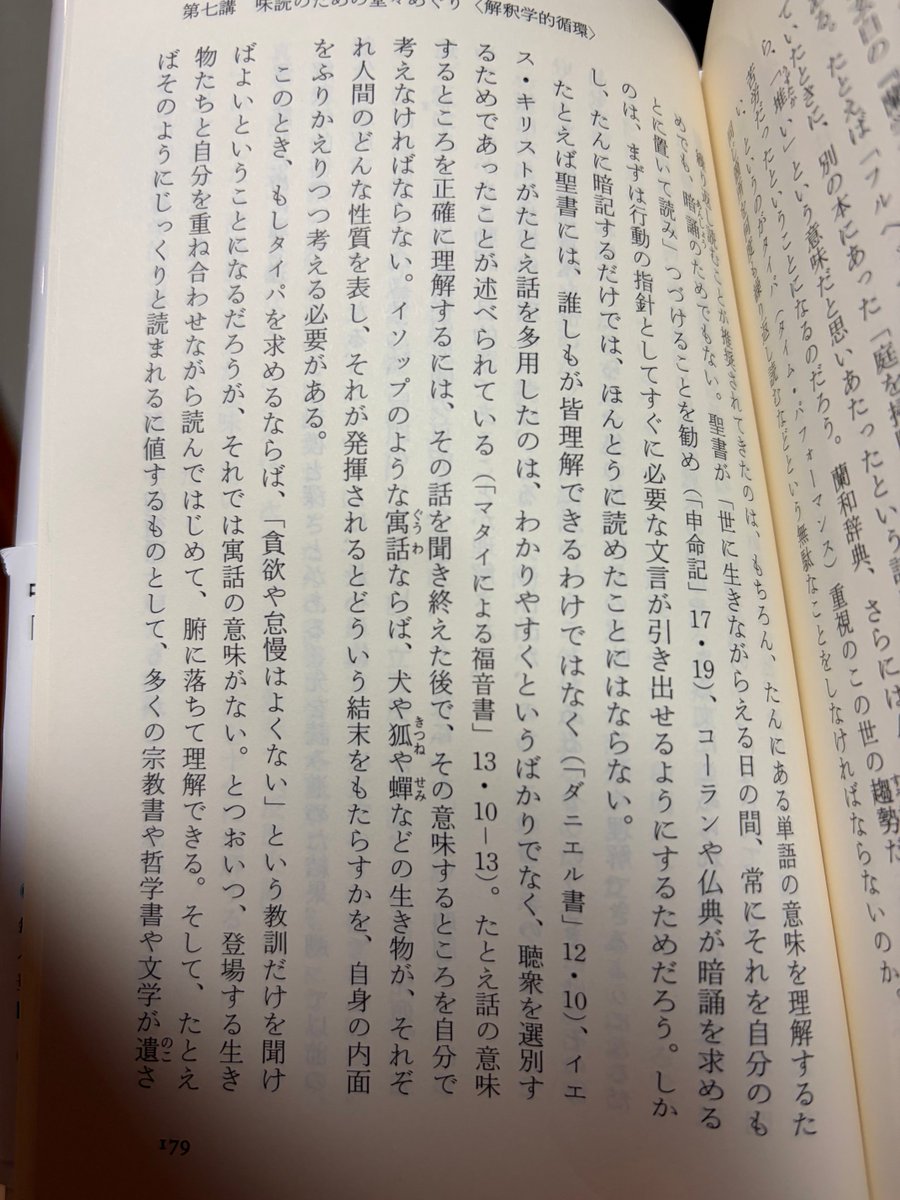 第七講　味読のための堂々めぐり〈解釈学的循環〉
たとえば「フル
ていたときに、別の本にあった「庭を掃
「堆い」という意味だと思いあたったという話
考訳だったということになるのだろう。蘭和辞典、さらには
い、というのがタイパ（タイム・パフォーマンス）重視のこの世の趨勢だ
繰り返し読むなどという無駄なことをしなければならないのか。
繰り返し読むことが推奨されてきたのは、もちろん、たんにある単語の意味を理解するた
めでも、暗誦のためでもない。聖書が「世に生きながらえる日の間、常にそれを自分のも
とに置いて読み」つづけることを勧め（「申命記」17・19）、コーランや仏典が暗誦を求める
のは、まずは行動の指針としてすぐに必要な文言が引き出せるようにするためだろう。しか
し、たんに暗記するだけでは、ほんとうに読めたことにはならない。
たとえば聖書には、誰しもが皆理解できるわけではなく（「ダニエル書」12・10）、イエ
ス・キリストがたとえ話を多用したのは、わかりやすくというばかりでなく、聴衆を選別す
るためであったことが述べられている（「マタイによる福音書」13・10－13）。たとえ話の意味
するところを正確に理解するには、その話を聞き終えた後で、その意味するところを自分で
考えなければならない。イソップのような寓話ならば、犬や狐や蟬などの生き物が、それぞ
れ人間のどんな性質を表し、それが発揮されるとどういう結末をもたらすかを、自身の内面
をふりかえりつつ考える必要がある。
このとき、もしタイパを求めるならば、「貪欲や怠慢はよくない」という教訓だけを聞け
ばよいということになるだろうが、それでは寓話の意味がない。とつおいつ、登場する生き
物たちと自分を重ね合わせながら読んではじめて、腑に落ちて理解できる。そして、たとえ
ばそのようにじっくりと読まれるに値するものとして、多くの宗教書や哲学書や文学が遺さ
179